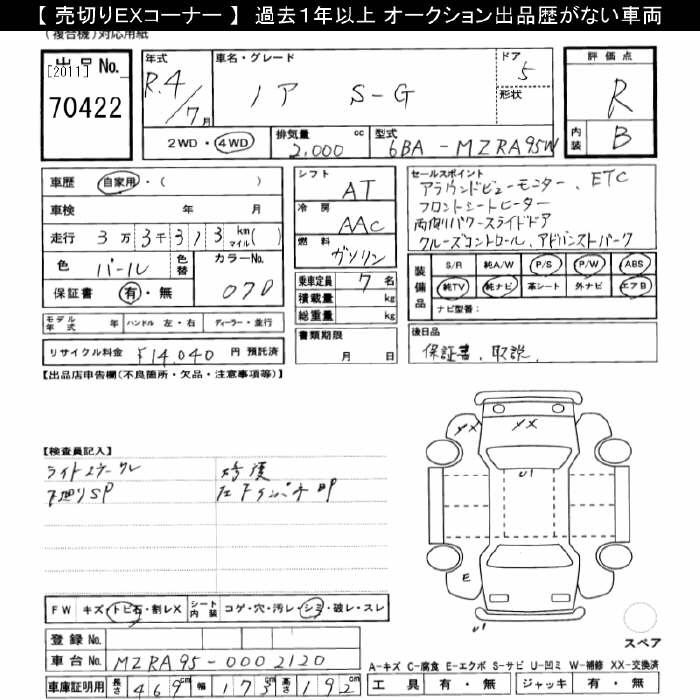 【 売切りＥＸコーナー 】 過去１年以上 オークション出品歴がない車両
(複合機)対応用紙
出品No.
[2011]
70422
年式
R.4/7月
車名・グレード
ノア S-G
ドア
5
形状
評価点
R
内装
B
2WD・4WD
排気量 cc
2,000
型式
6BA - MZRA95W
車歴 自家用・( )
車検 年 月
走行 3万3千313 km マイル( )
色 パール 色替 カラーNo. 070
保証書 有・無
シフト AT
冷房 AAC
燃料 ガソリン
乗車定員 7 名
積載量 kg
総重量 kg
セールスポイント
アラウンドビューモニター、ETC
フロントシートヒーター
両側パワースライドドア
クルーズコントロール、アドバンストパーク
装備品
S/R 純A/W P/S P/W ABS
純TV 純ナビ 革シート 外ナビ エアB
ナビ型番:
モデル年式 年 ハンドル 左・右 ディーラー・並行
リサイクル料金 ¥14,040 円 預託済
書類期限
月 日
後日品
保証書、取説、
【出品店申告欄(不良箇所・欠品・注意事項等)】
【検査員記入】
下廻りSP
XX
XX
U1
E
U1
FW キズ・トビ石・割レX シート内装 コゲ・穴・汚レ・シミ・破レ・スレ
登録No.
車台No. MZRA95-0002120
車庫証明用 長さ 469cm 幅 173cm 高さ 192cm
スペア
A-キズ C-腐食 E-エクボ S-サビ U-凹ミ W-補修 XX-交換済
工具 有・無 ジャッキ 有・無